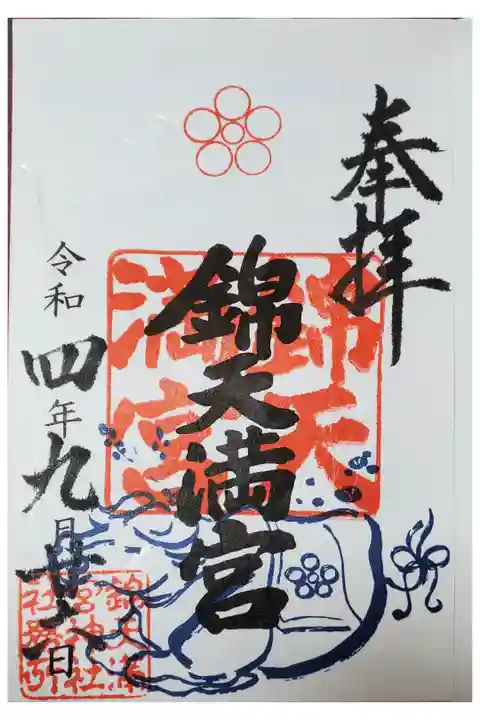 奉拝
錦天満宮
錦天
満宮
令和四年九月廿六日
錦天満
宮神社
社務所